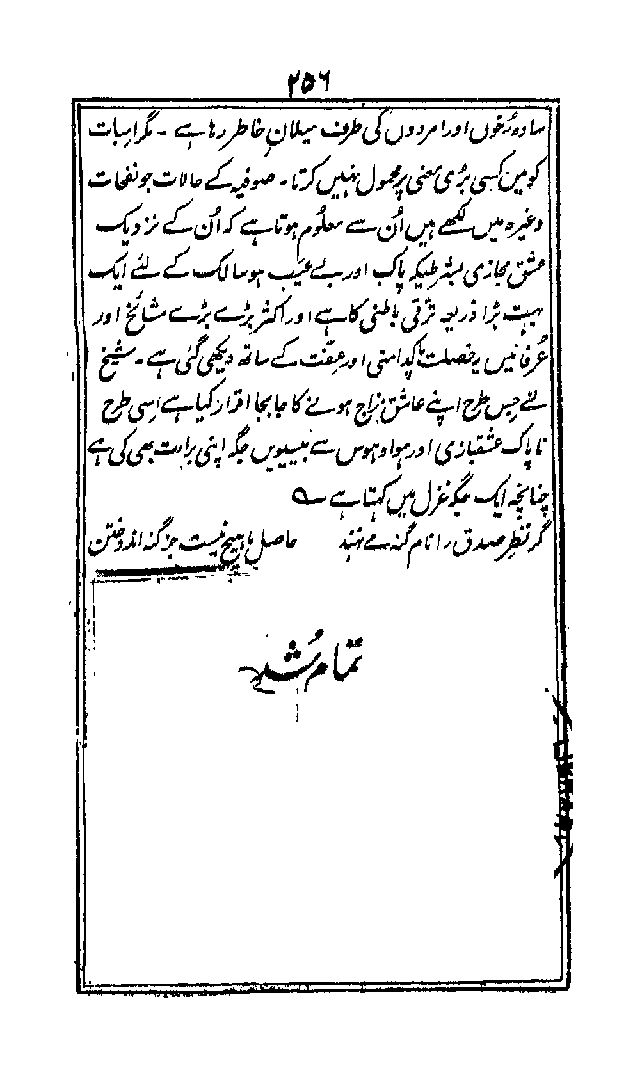 ۲۵۶
سادہ رُخوں اور امردوں کی طرف میلانِ خاطر رہا ہے ۔ مگر اسبات
کو میں کسی بُری معنی پر محمول نہیں کرتا ۔ صوفیہ کے حالات جو نفحات
وغیرہ میں لکھے ہیں اُن سے معلوم ہوتا ہے کہ اُن کے نزدیک
عشق مجازی بشرطیکہ پاک اور بے عیب ہو سالک کے لئے ایک
بہت بڑا ذریعہ ترقی باطنی کا ہے اور اکثر بڑے بڑے مشائخ اور
عُرفا میں یہ خصلت پاکدامنی اور عفت کے ساتھ دیکھی گئی ہے ۔ شیخ
نے جس طرح اپنے عاشق مزاج ہونے کا جابجا اقرار کیا ہے اسی طرح
ناپاک عشقبازی اور ہوا و ہوس سے بیسیوں جگہ اپنی برارت بھی کی ہے
چنانچہ ایک جگہ غزل میں کہتا ہے ؎
گر نظرِ صدق را نام گنہ مے نہند حاصل ما ہیچ نیست جز گنہ اندوختن
تمام شُد